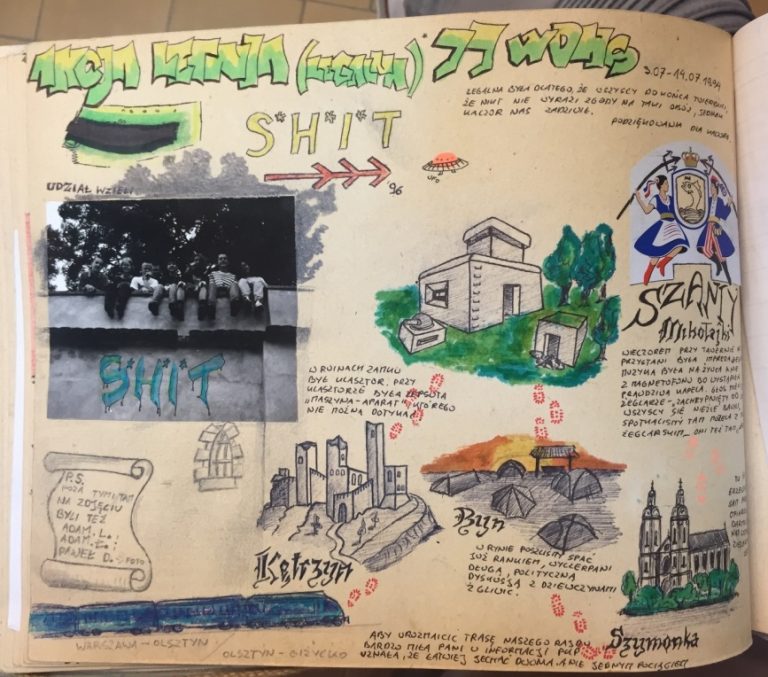 AKCJA LETNIA (LEGALNA) 77 WDHS
3.07-19.07 1994
LEGALNA BYŁA DLATEGO, ŻE WSZYSCY DO KOŃCA TWIERDZILI,
ŻE NIKT NIE WYRAZI ZGODY NA TAKI OBÓZ, JEDNAK
KACZOR NAS ZADZIWIŁ.
PODZIĘKOWANIA DLA KACZORA
S*H*I*T
96
UFO
UDZIAŁ WZIĘLI
S*H*I*T
W RUINACH ZAMKU
BYŁ KLASZTOR. PRZY
KLASZTORZE BYŁA ZEPSUTA
"MASZYNA-APARAT" KTÓREGO
NIE MOŻNA DOTYKAĆ
SZANTY
Mikołajki
WIECZOREM PRZY TAWERNIE W
PRZYSTANI BYŁA IMPREZA
MUZYKA BYŁA NA ŻYWO A NIE
Z MAGNETOFONU BO WYSTĄPIŁA
PRAWDZIWA KAPELA.
ŻEGLARZE - "ZACHRYPNIĘTY
WSZYSCY SIĘ NIEŹLE
SPOTKALIŚMY TAM
ŻEGLARSKIM... ONI TEŻ TAM
P.S.
POZA TYMI, TAM
NA ZDJĘCIU
BYLI TEŻ
ADAM. L.;
ADAM. Ł.;
PAWEŁ D. - FOTO
Kętrzyn
Ryn
W RYNIE POSZLIŚMY SPAĆ
JUŻ RANKIEM, WYCZERPANI
DŁUGĄ, POLITYCZNĄ
DYSKUSJĄ Z DZIEWCZYNAMI
Z GLIWIC.
Szymonka
WARSZAWA - OLSZTYN
OLSZTYN - GIŻYCKO
ABY UROZMAICIĆ TRASĘ NASZEGO RAJDU
BARDZO MIŁA PANI W INFORMACJI PKP
UZNAŁA, ŻE ŁATWIEJ JECHAĆ DWOMA, A NIE JEDNYM POCIĄGIEM